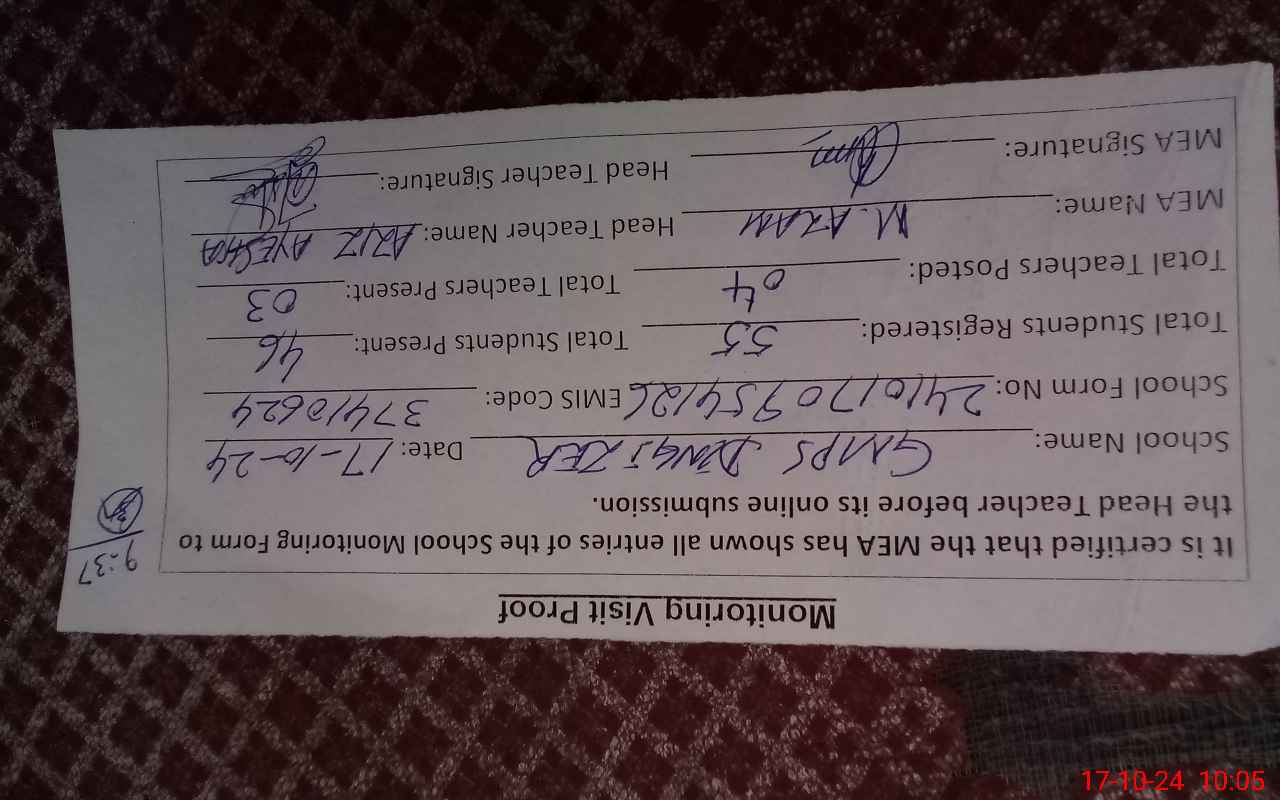 Monitoring Visit Proof
It is certified that the MEA has shown all entries of the School Monitoring Form to
the Head Teacher before its online submission.
9:37
School Name: GMPS DINGI ZER Date: 17-10-24
School Form No: 2410170954126 EMIS Code: 37410624
Total Students Registered: 55 Total Students Present: 46
Total Teachers Posted: 04 Total Teachers Present: 03
MEA Name: M. AZAM Head Teacher Name: AZIZ AYESHA
MEA Signature: Head Teacher Signature:
17-10-24 10:05